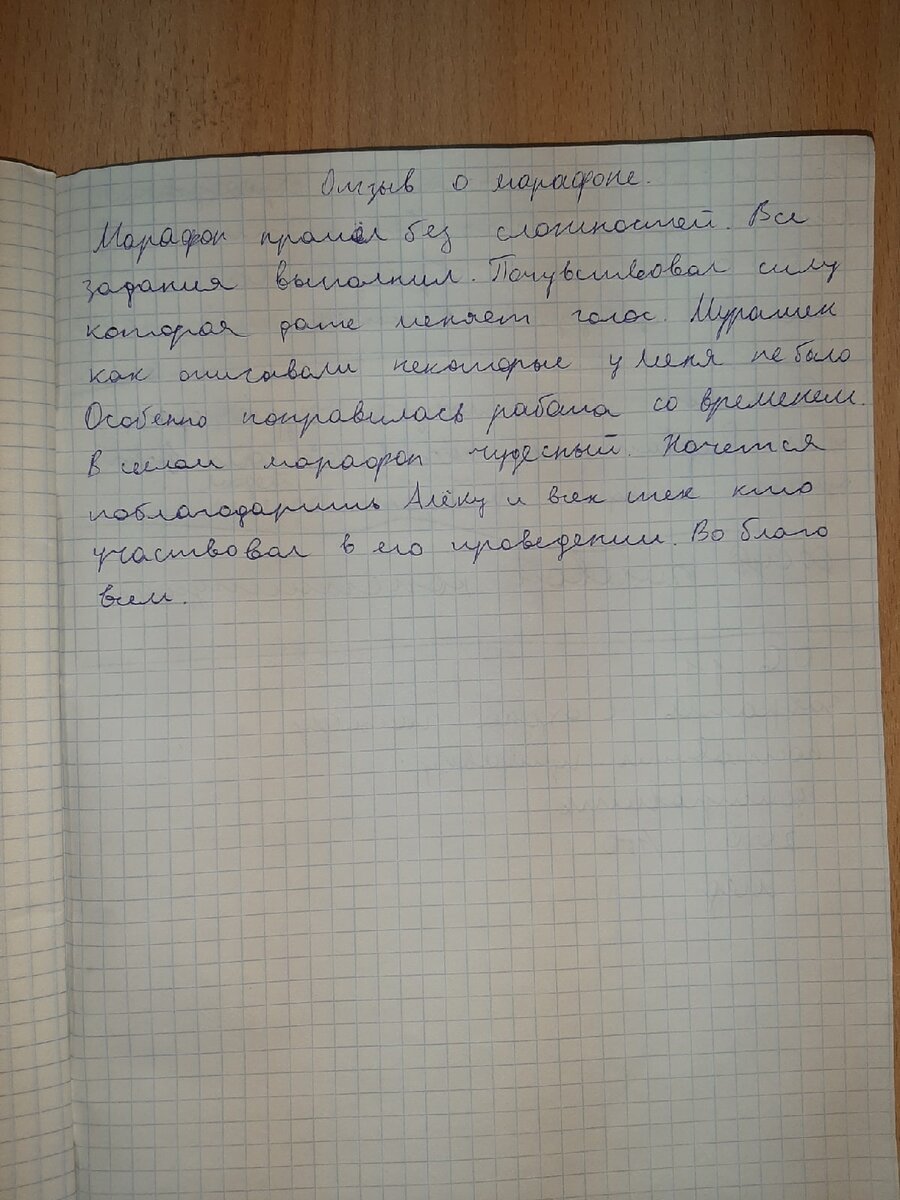 Отзыв о марафоне.
Марафон прошёл без сложностей. Все
задания выполнил. Почувствовал силу
которая даже меняет голос. Мурашек
как описывали некоторые у меня не было
Особенно понравилась работа со временем.
В целом марафон чудесный. Хочется
поблагодарить Алёну и всех тех кто
участвовал в его проведении. Во благо
всем.